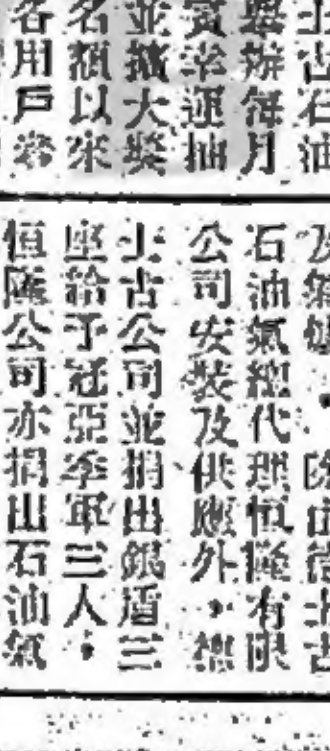 士古石油
舉辦每月
賓幸運抽
並擴大獎
名額以來
各用戶
及氣爐，除由德士古
石油氣總代理恒隆有限
公司安裝及供應外，德
士古公司並捐出銀盾三
座給予冠亞季軍三人，
恒隆公司亦捐出石油氣